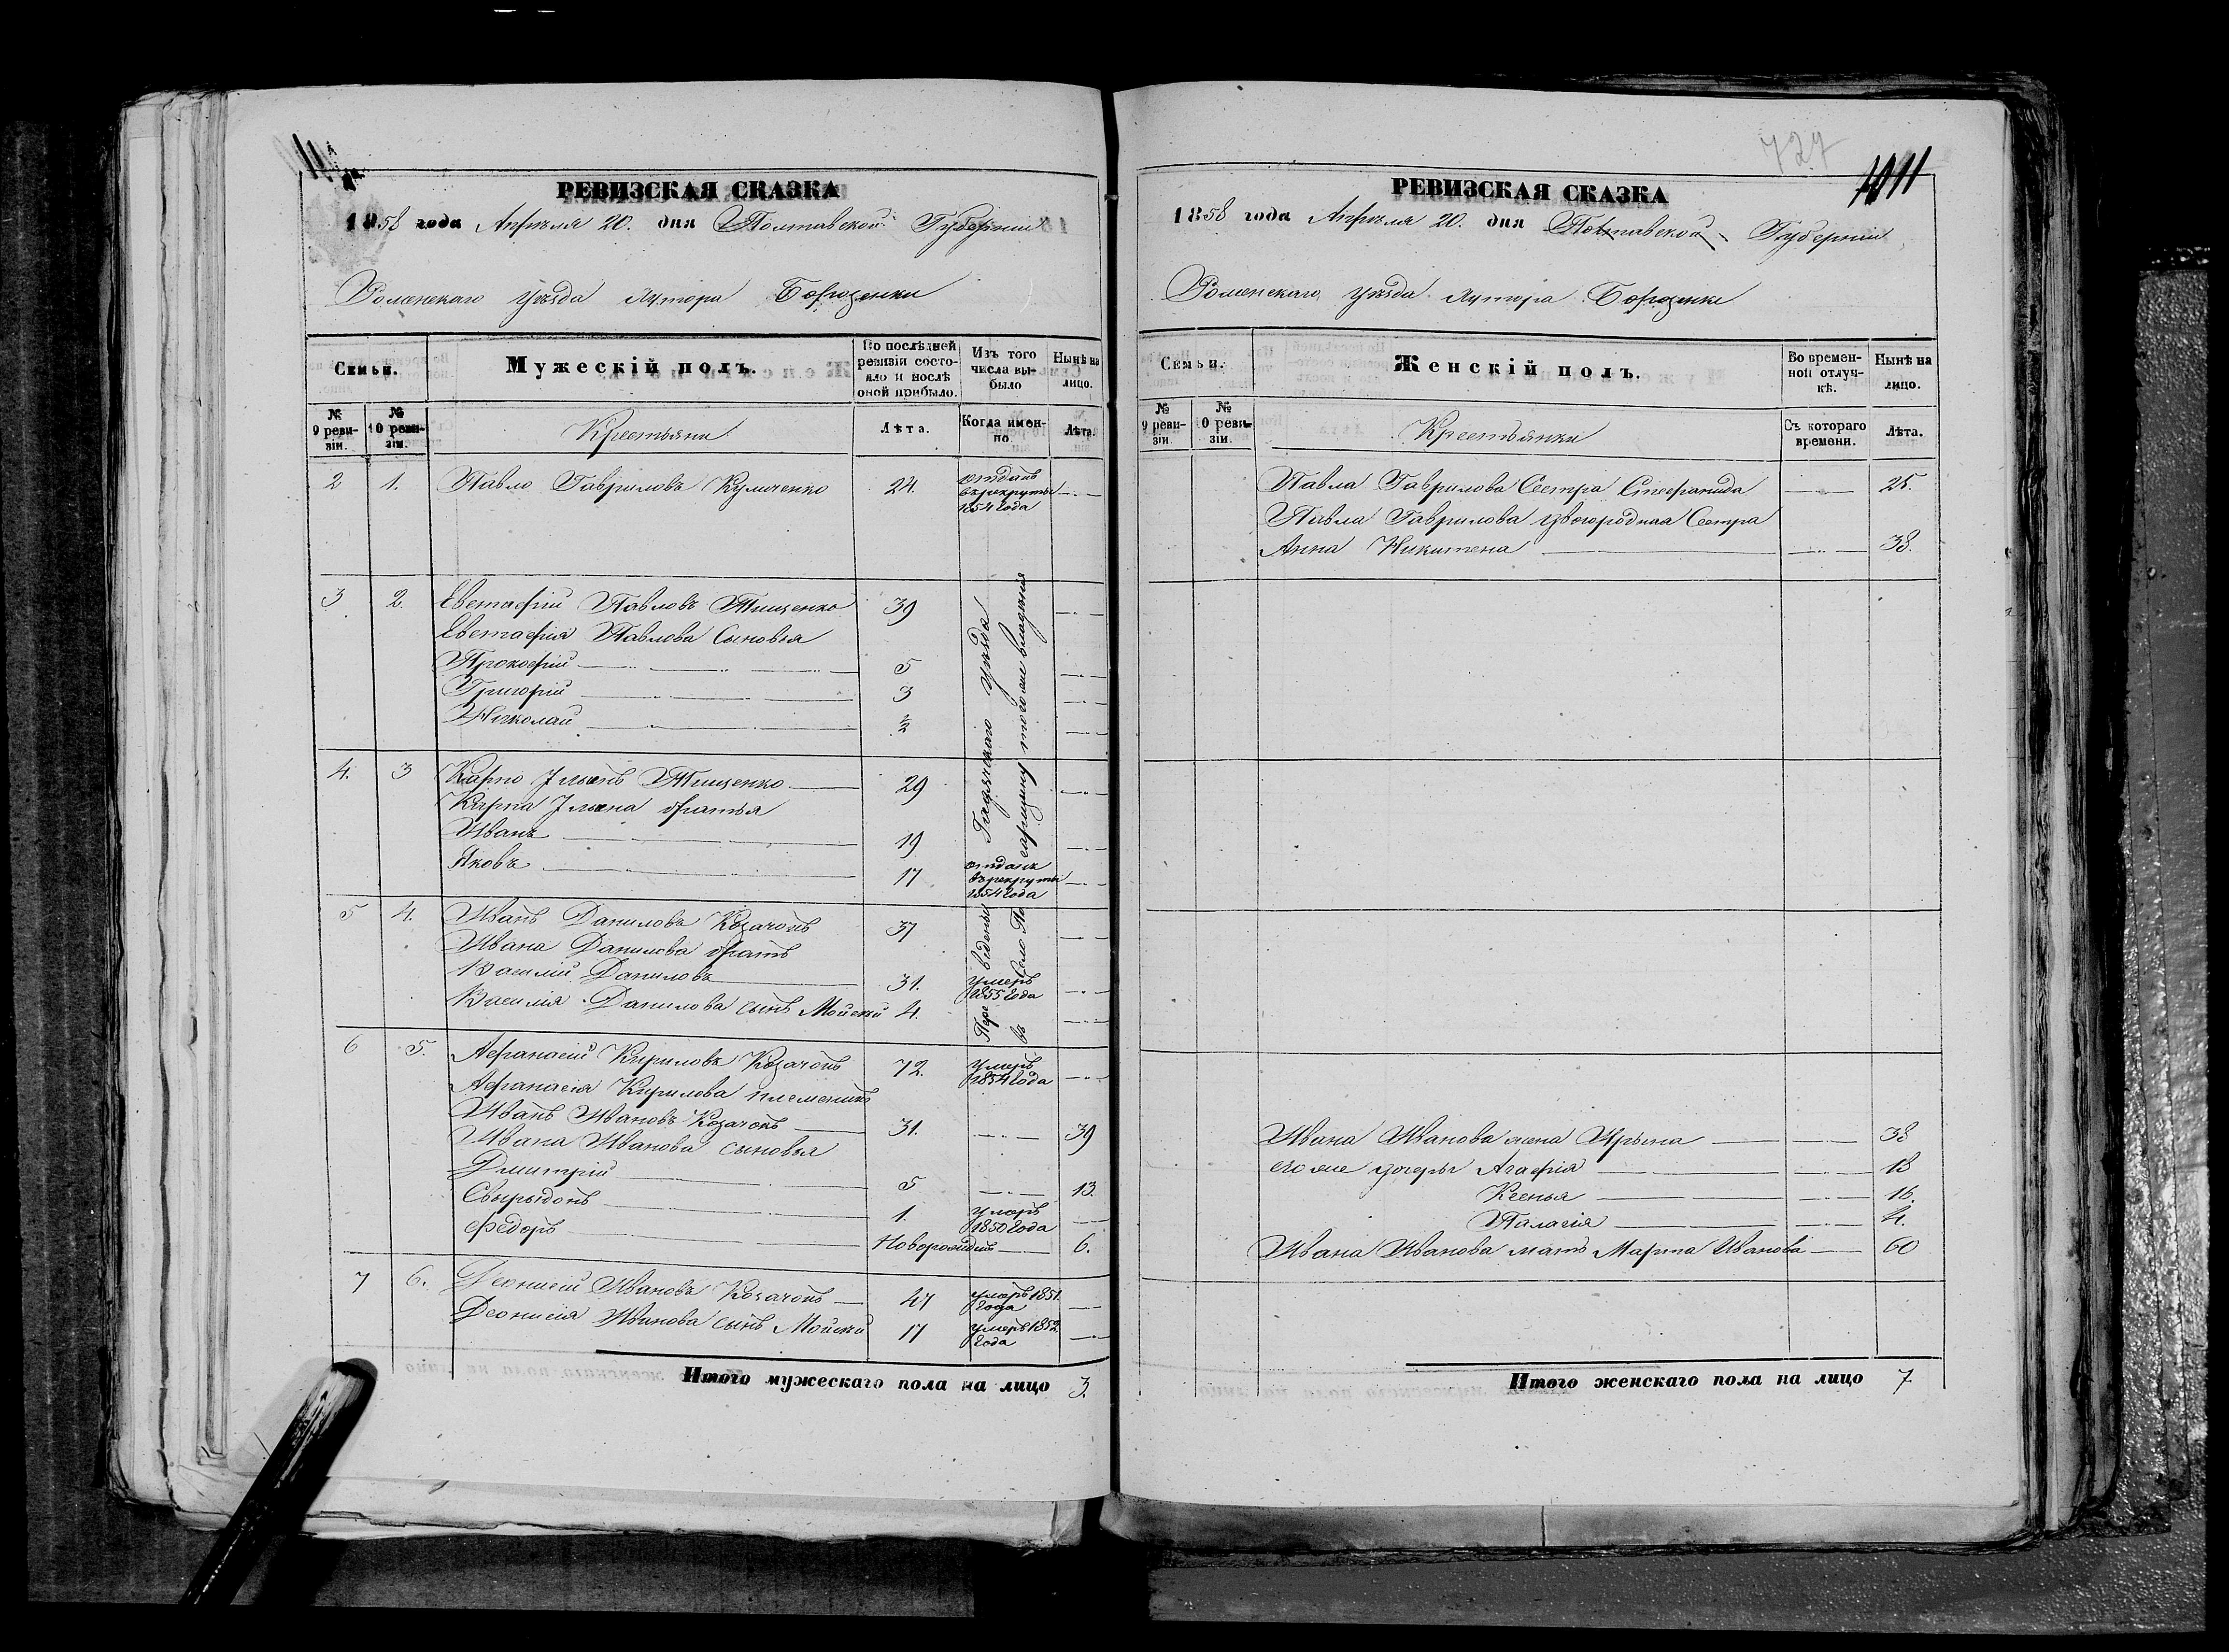 РЕВИЗСКАЯ СКАЗКА
1858 года Апреля 20. дня Полтавской Губернии
Роменскаго Уезда Хутора
Семьи.
Мужескій полъ.
Во послѣдней ревизіи состояло и послѣ оной прибыло.
Изъ того числа выбыло
Нынѣ на лицо.
№ 9 ревизіи.
№ 10 ревизіи.
Крестьяни
Лѣта.
Когда именно.
Лѣта.
2 1. Павло Гавриловъ 24. отданъ въ рекруты 1854 года
3 2. Евстафій Павловъ Тищенко 39
Евстафія Павлова Сыновья
Прокофій 5
Григорій 3
Николай ½
4. 3 Карпо Тищенко 29
Карпа братья
Иванъ 19
Яковъ 17 отданъ въ рекруты 1854 года
5 4. Иванъ Даниловъ Козачокъ 37
Ивана Данилова братъ
Василій Даниловъ 31. умеръ 1855 года
Василія Данилова сынъ Мойсей 4.
Переведены Гадячского уезда
въ село того же владения
6 5. Афанасій Кириловъ Козачокъ 72. умеръ 1854 года
Афанасія Кирилова племеникъ
Иванъ Ивановъ Козачокъ 31. 39
Ивана Иванова сыновья
Дмитрій 5 13.
Свыридонъ 1. умеръ 1850 года
Федоръ Новорожденъ 6.
7 6. Деонисій Ивановъ Козачокъ 47 умеръ 1851. года
Деонисія Иванова сынъ Мойсей 17 умеръ 1852 года
Итого мужескаго пола на лицо 3.
727
1011
РЕВИЗСКАЯ СКАЗКА
1858 года Апреля 20. дня Полтавской Губернии
Роменскаго Уезда Хутора
Семьи.
Женскій полъ.
Во временной отлучкѣ.
Нынѣ на лицо.
№ 9 ревизіи.
№ 10 ревизіи.
Крестьянки
Съ котораго времени.
Лѣта.
Павла Гаврилова Сестра Стефанида 25.
Павла Гаврилова двогородная Сестра
Анна Никитена 38.
Ивана Иванова жена Ирына 38
его же дочеры Агафія 18
Ксенья 16.
Палагія 4.
Ивана Иванова мать Марта Иванова 60
Итого женскаго пола на лицо 7